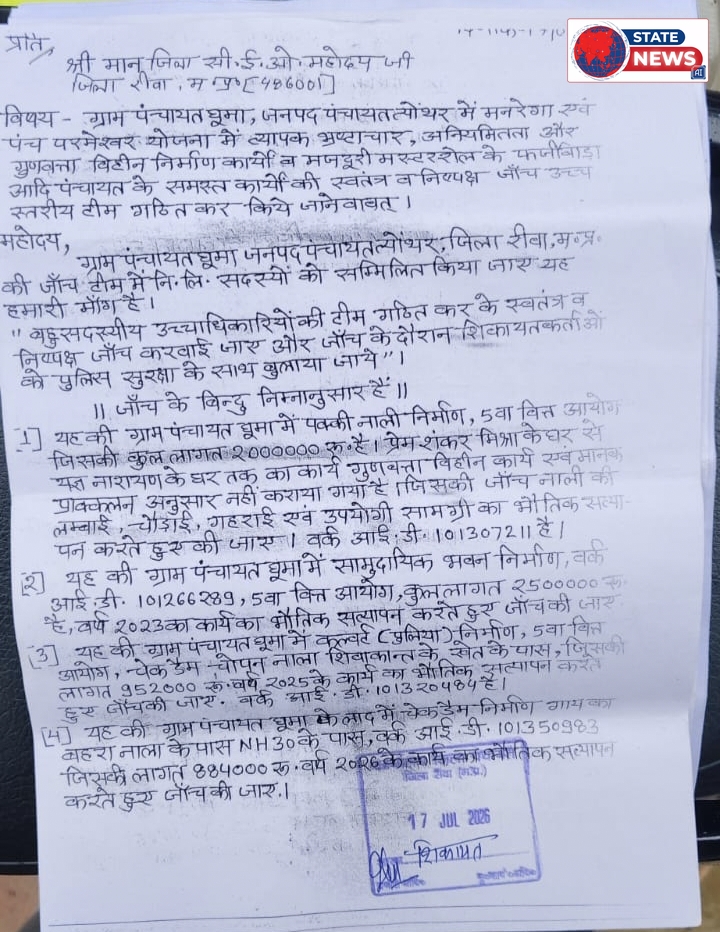 STATE
NEWS
AI
प्रति,
श्री मान् जिला सी.ई.ओ. महोदय जी
जिला रीवा, म.प्र.[486001]
विषय - ग्राम पंचायत घूमा, जनपद पंचायत त्योंथर में मनरेगा एवं
पंच परमेश्वर योजना में व्यापक भ्रष्टाचार, अनियमितता और
गुणवत्ता विहीन निर्माण कार्यों व मजदूरी मस्टररोल के फर्जीवाड़ा
आदि पंचायत के समस्त कार्यों की स्वतंत्र व निष्पक्ष जाँच उच्च
स्तरीय टीम गठित कर किये जाने वावत् ।
महोदय,
ग्राम पंचायत घूमा जनपद पंचायत त्योंथर, जिला रीवा, म.प्र.
की जाँच टीम में नि.लि. सदस्यों को सम्मिलित किया जाए यह
हमारी माँग है।
"बहुसदस्यीय उच्चाधिकारियों की टीम गठित कर के स्वतंत्र व
निष्पक्ष जाँच करवाई जाए और जाँच के दौरान शिकायतकर्ताओं
को पुलिस सुरक्षा के साथ बुलाया जाये"।
॥ जाँच के बिन्दु निम्नानुसार हैं ॥
[1] यह की ग्राम पंचायत घूमा में पक्की नाली निर्माण, 5वा वित्त आयोग
जिसकी कुल लागत 2000000 रू. है। प्रेम शंकर मिश्रा के घर से
यज्ञ नारायण के घर तक का कार्य गुणवत्ता विहीन कार्य एवं मानक
प्राक्कलन अनुसार नहीं कराया गया है। जिसकी जाँच नाली की
लम्बाई, चौड़ाई, गहराई एवं उपयोगी सामग्री का भौतिक सत्या-
पन करते हुए की जाए। वर्क आई.डी. 101307211 है।
[2] यह की ग्राम पंचायत घूमा में सामुदायिक भवन निर्माण, वर्क
आई.डी. 101266289, 5वा वित्त आयोग, कुल लागत 2500000 रू.
है, वर्ष 2023 का कार्य का भौतिक सत्यापन करते हुए जाँच की जाए
[3] यह की ग्राम पंचायत घूमा में कल्वर्ट (पुलिया) निर्माण, 5वा वित्त
आयोग, चेक डैम चोपन नाला शिवाकान्त के खेत के पास, जिसकी
लागत 952000 रू. वर्ष 2025 के कार्य का भौतिक सत्यापन करते
हुए जाँच की जाए. वर्क आई.डी. 101320484 है।
[4] यह की ग्राम पंचायत घूमा के लाद में चेकडैम निर्माण गाय का
बहरा नाला के पास NH30 के पास, वर्क आई.डी. 101350983
जिसकी लागत 884000 रू. वर्ष 2026 के कार्य का भौतिक सत्यापन
करते हुए जाँच की जाए।
जिला रीवा (म.प्र.)
17 JUL 2026
शिकायत